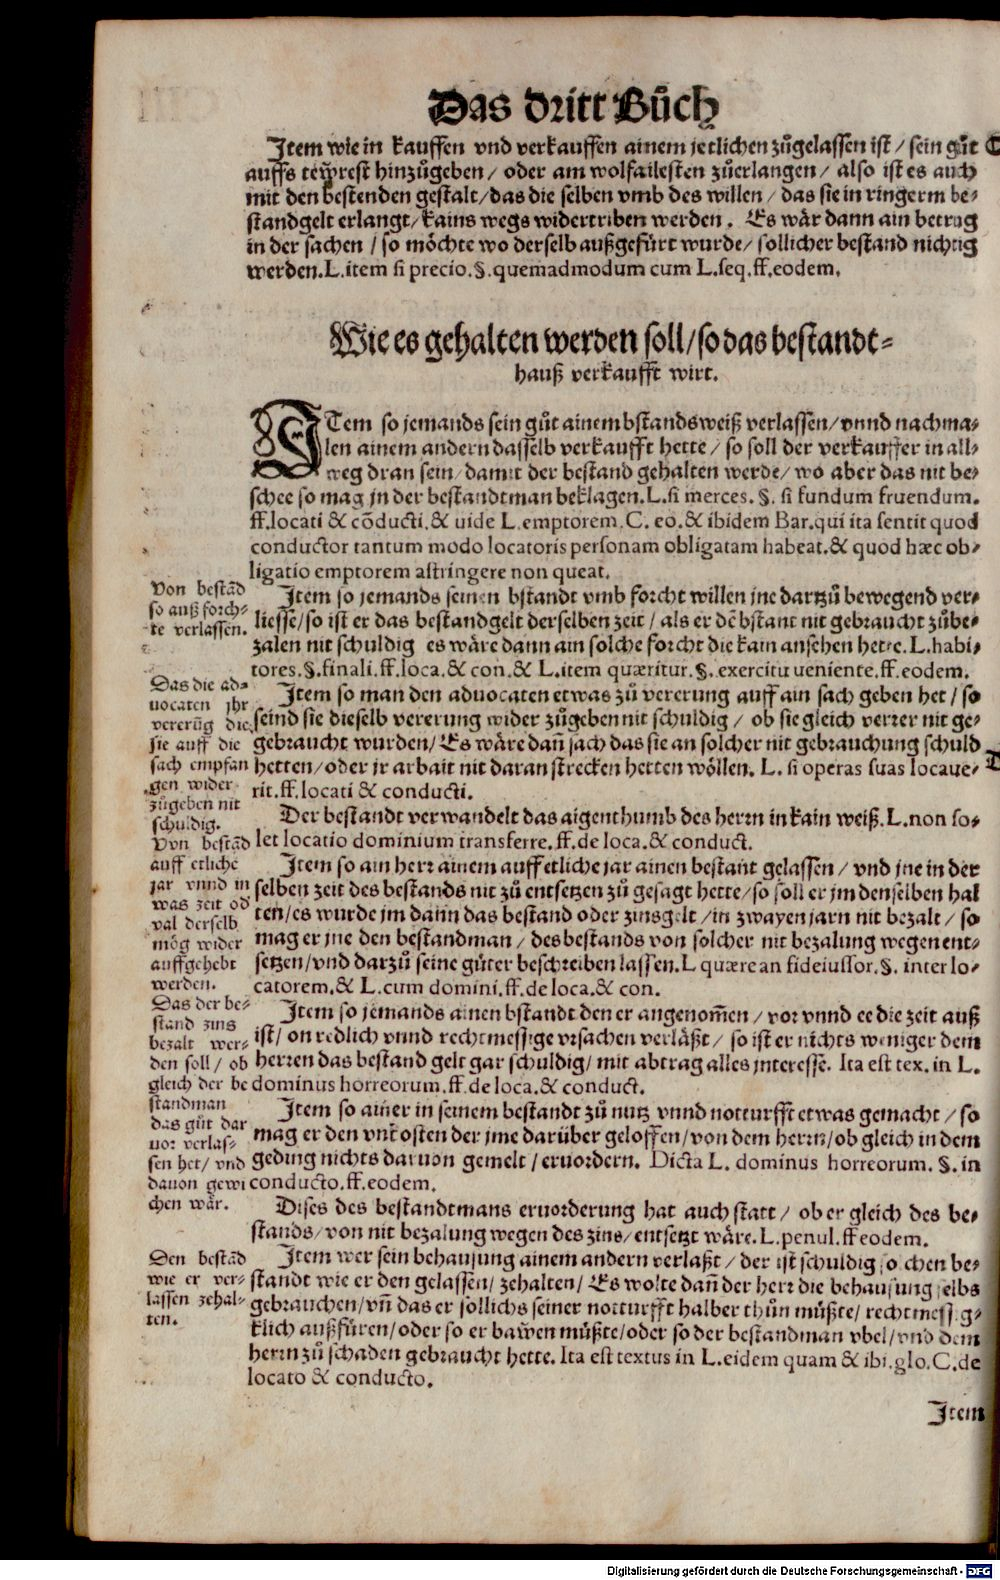 Das dritt Bůch
Item wie in kauffen vnd verkauffen ainem jetlichen zůgelassen ist / sein gůt
auffs tewrest hinzůgeben / oder am wolfailesten zůerlangen / also ist es auch
mit den bestenden gestalt / das die selben vmb des willen / das sie in ringerm be-
standgelt erlangt / kains wegs widertriben werden. Es wår dann ain betrug
in der sachen / so mõchte wo derselb außgefůrt wurde / sollicher bestand nichtig
werden. L. item si precio. §. quemadmodum cum L. seq. ff. eodem.
Wie es gehalten werden soll / so das bestandt-
hauß verkaufft wirt.
ITem so jemands sein gůt ainem bstandsweiß verlassen / vnnd nachma-
len ainem andern dasselb verkaufft hette / so soll der verkauffer in all-
weg dran sein / damit der bestand gehalten werde / wo aber das nit be-
schee so mag jn der bestandtman beklagen. L. si merces. §. si fundum fruendum.
ff. locati & cõducti. & uide L. emptorem. C. eo. & ibidem Bar. qui ita sentit quod
conductor tantum modo locatoris personam obligatam habeat. & quod hæc ob-
ligatio emptorem astringere non queat.
Von bestãd
so auß forch-
te verlassen.
Item so jemands seinen bstandt vmb forcht willen jne dartzů bewegend ver-
liesse / so ist er das bestandgelt derselben zeit / als er dẽ bstant nit gebraucht zůbe-
zalen nit schuldig es wåre dann ain solche forcht die kain ansehen hette. L. habi-
tores. §. finali. ff. loca. & con. & L. item quæritur. §. exercitu ueniente. ff. eodem.
Das die ad-
uocaten jhr
vererũg die
sie auff die
sach empfan
gen wider
zůgeben nit
schuldig.
Item so man den aduocaten etwas zů vererung auff ain sach geben het / so
seind sie dieselb vererung wider zůgeben nit schuldig / ob sie gleich verrer nit ge-
gebraucht wurden / Es wåre dañ sach das sie an solcher nit gebrauchung schuld
hetten / oder jr arbait nit daran strecken hetten wõllen. L. si operas suas locaue-
rit. ff. locati & conducti.
Der bestandt verwandelt das aigenthumb des herrn in kain weiß. L. non so-
let locatio dominium transferre. ff. de loca. & conduct.
Von bestãd
auff etliche
jar vnnd in
was zeit od
val derselb
mõg wider
auffgehebt
werden.
Item so ain herr ainem auff etliche jar ainen bestant gelassen / vnd jne in der
selben zeit des bestands nit zů entsetzen zů gesagt hette / so soll er jm denselben hal
ten / es wurde jm dann das bestand oder zinsgelt / in zwayen jarn nit bezalt / so
mag er jne den bestandman / des bestands von solcher nit bezalung wegen ent-
setzen / vnd darzů seine gůter beschreiben lassen. L quære an fideiussor. §. inter lo-
catorem. & L. cum domini. ff. de loca. & con.
Das der be-
stand zins
bezalt wer-
den soll / ob
gleich der be
standman
das gůt dar
uor verlas-
sen het / vnd
dauon gewi
chen wår.
Item so jemands ainen bstandt den er angenom̃en / vor vnnd ee die zeit auß
ist / on redlich vnnd rechtmessige vrsachen verlåßt / so ist er nichts weniger dem
herren das bestand gelt gar schuldig / mit abtrag alles jnteresse. Ita est tex. in L.
dominus horreorum. ff. de loca. & conduct.
Item so ainer in seinem bestandt zů nutz vnnd notturfft etwas gemacht / so
mag er den vnkosten der jme darüber geloffen / von dem herrn / ob gleich in dem
geding nichts daruon gemelt / eruordern. Dicta L. dominus horreorum. §. in
conducto. ff. eodem.
Dises des bestandtmans eruorderung hat auch statt / ob er gleich des be-
stands / von nit bezalung wegen des zins / entsetzt wåre. L. penul. ff eodem.
Den bestãd
wie er ver-
lassen zehal-
ten.
Item wer sein behausung ainem andern verlaßt / der ist schuldig solchen be-
standt wie er den gelassen / zehalten / Es wolte dañ der herr die behausung selbs
gebrauchen / vñ das er sollichs seiner notturfft halber thůn můßte / rechtmessig-
klich außfůren / oder so er bawen můßte / oder so der bestandman vbel / vnd dem
herrn zů schaden gebraucht hette. Ita est textus in L. eidem quam & ibi. glo. C. de
locato & conducto.
Item
Digitalisierung gefördert durch die Deutsche Forschungsgemeinschaft - DFG